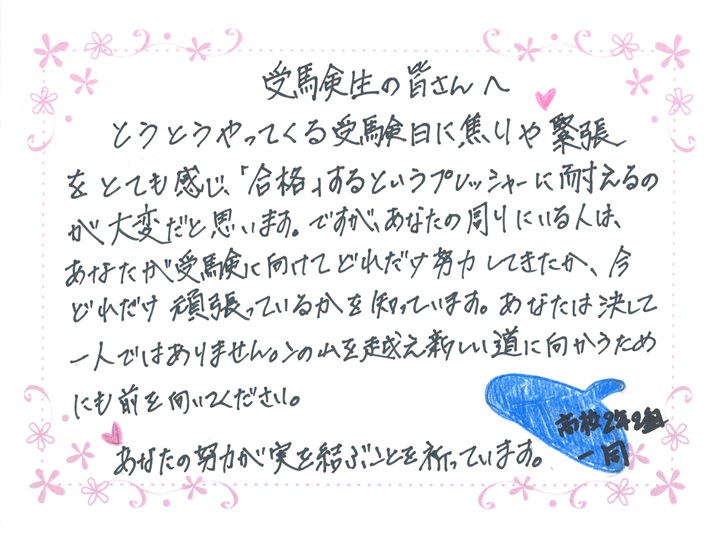 受験生の皆さんへ
とうとうやってくる受験日に焦りや緊張
をとても感じ、「合格」するというプレッシャーに耐えるの
が大変だと思います。ですが、あなたの周りにいる人は、
あなたが受験に向けてどれだけ努力してきたか、今
どれだけ頑張っているかを知っています。あなたは決して
一人ではありません。この山を越え新しい道に向かうため
にも前を向いてください。
あなたの努力が実を結ぶことを祈っています。
高校2年2組
一同